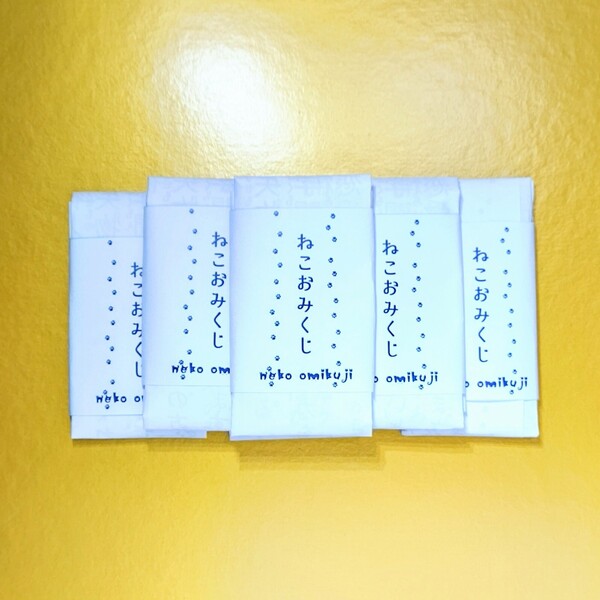 ねこおみくじ
neko om
ねこおみくじ
neko om
ねこおみくじ
neko omikuji
ねこおみくじ
omikuji
ねこおみくじ
omikuji